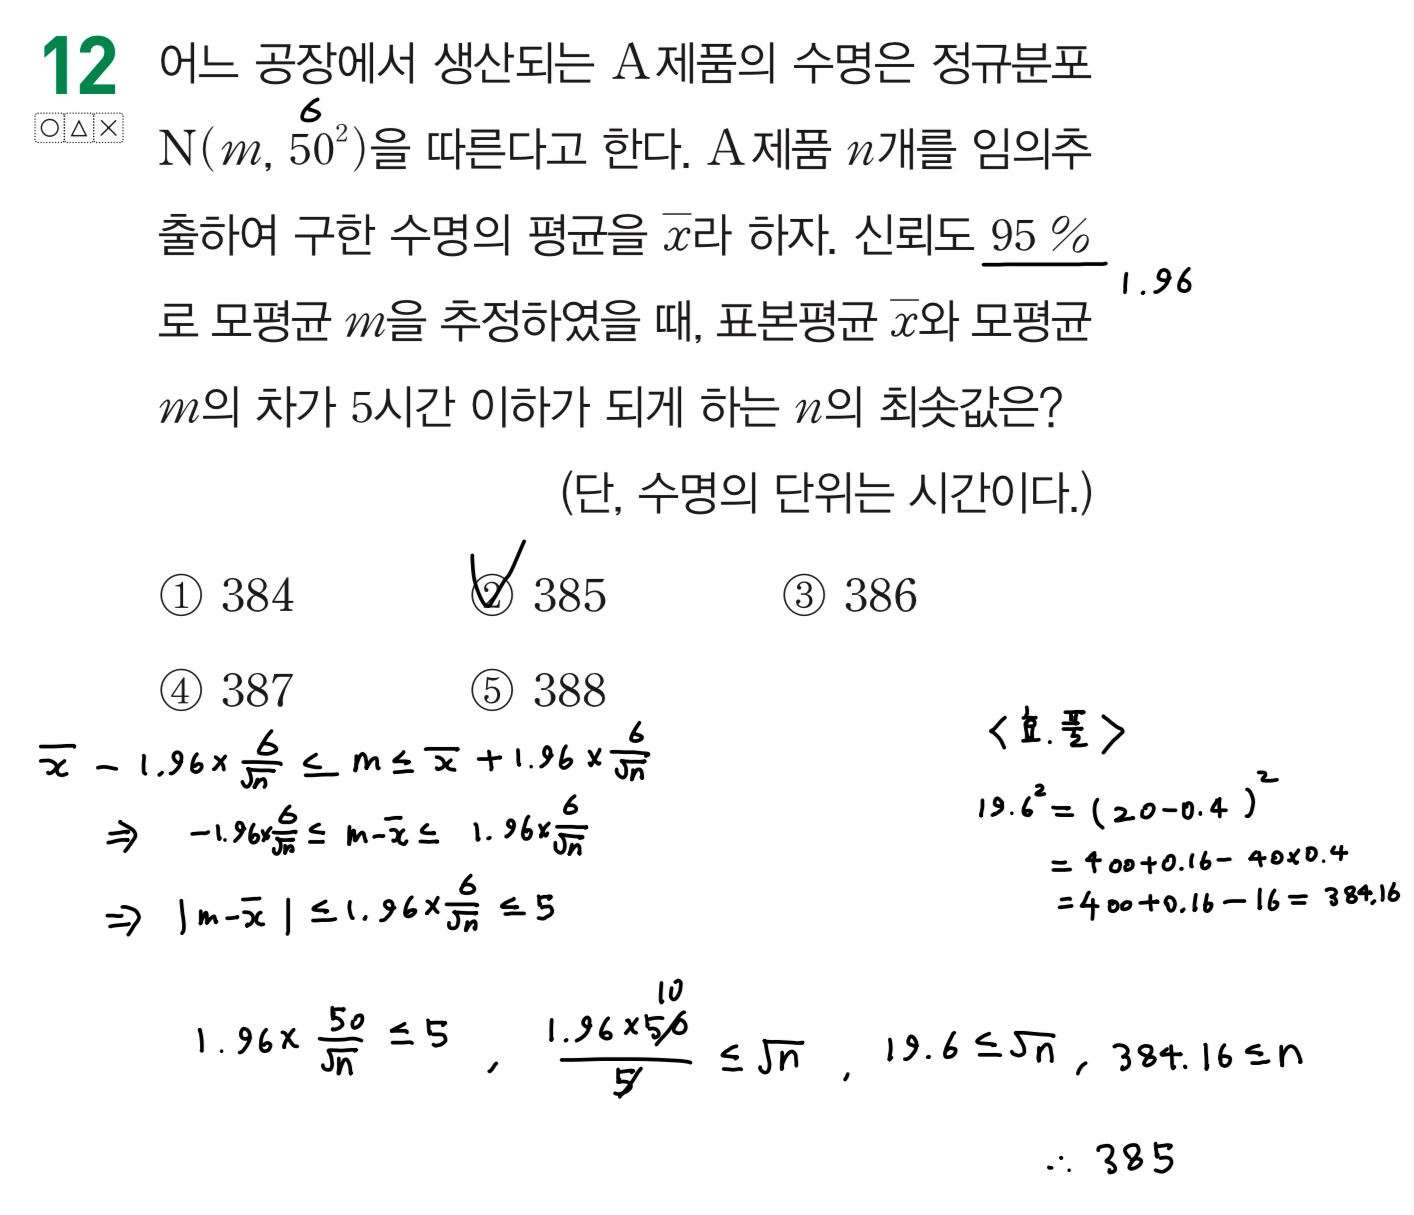 12 어느 공장에서 생산되는 A제품의 수명은 정규분포
6
N(m, 50²)을 따른다고 한다. A제품 n개를 임의추
출하여 구한 수명의 평균을 x̄라 하자. 신뢰도 95 %
1.96
로 모평균 m을 추정하였을 때, 표본평균 x̄와 모평균
m의 차가 5시간 이하가 되게 하는 n의 최솟값은?
(단, 수명의 단위는 시간이다.)
① 384 ② 385 ③ 386
④ 387 ⑤ 388
x̄ - 1.96 × 6/√n ≤ m ≤ x̄ + 1.96 × 6/√n
⇒ -1.96×6/√n ≤ m-x̄ ≤ 1.96×6/√n
⇒ |m-x̄| ≤ 1.96×6/√n ≤ 5
19.6² = (20-0.4)²
= 400+0.16- 40×0.4
= 400+0.16-16 = 384.16
1.96× 50/√n ≤ 5 , 1.96×50/5 ≤ √n , 19.6 ≤ √n , 384.16 ≤ n
10
∴ 385